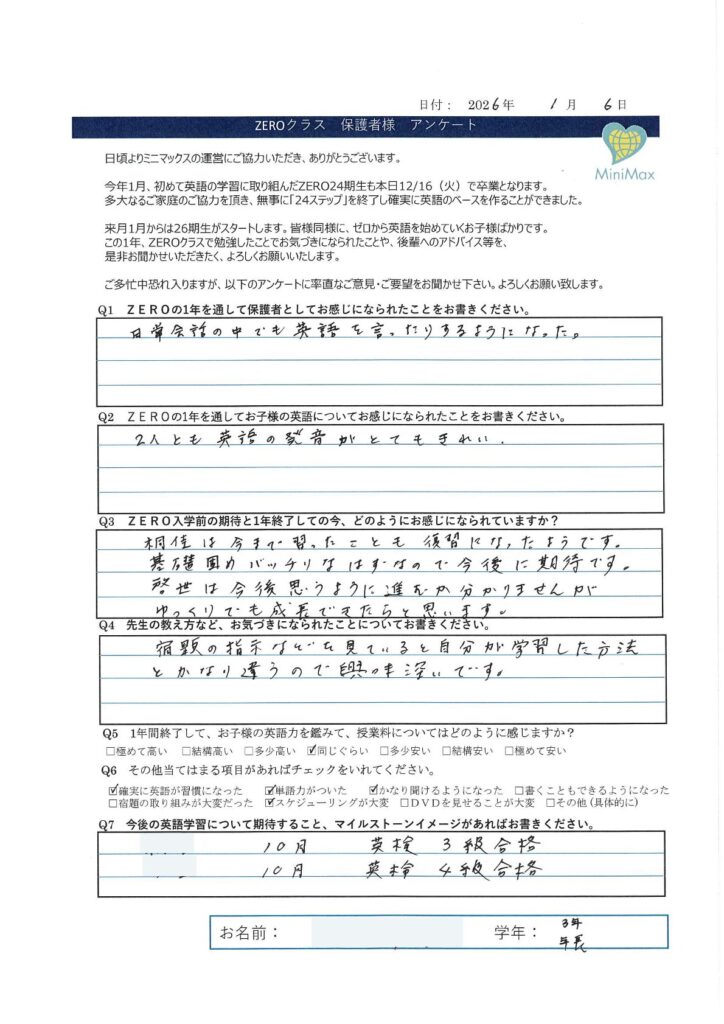 日付： 2026年 1月 6日
ZEROクラス 保護者様 アンケート
MiniMax
日頃よりミニマックスの運営にご協力いただき、ありがとうございます。
今年1月、初めて英語の学習に取り組んだZERO24期生も本日12/16（火）で卒業となります。
多大なるご家庭のご協力を頂き、無事に「24ステップ」を終了し確実に英語のベースを作ることができました。
来月1月からは26期生がスタートします。皆様同様に、ゼロから英語を始めていくお子様ばかりです。
この1年、ZEROクラスで勉強したことでお気づきになられたことや、後輩へのアドバイス等を、
是非お聞かせいただきたく、よろしくお願いいたします。
ご多忙中恐れ入りますが、以下のアンケートに率直なご意見・ご要望をお聞かせ下さい。よろしくお願い致します。
Q1 ＺＥＲＯの1年を通して保護者としてお感じになられたことをお書きください。
日常会話の中でも英語を言ったりするようになった。
Q2 ＺＥＲＯの1年を通してお子様の英語についてお感じになられたことをお書きください。
2人とも英語の発音がとてもきれい.
Q3 ＺＥＲＯ入学前の期待と1年終了しての今、どのようにお感じになられていますか？
は今まで習ったことも復習になったようです。
基礎固めバッチリなはずなので今後に期待です。
啓世は今後思うように進むか分かりませんが
ゆっくりでも成長できたらと思います。
Q4 先生の教え方など、お気づきになられたことについてお書きください。
宿題の指示などを見ていると自分が学習した方法
とかなり違うので興味深いです。
Q5 1年間終了して、お子様の英語力を鑑みて、授業料についてはどのように感じますか？
□極めて高い □結構高い □多少高い ☑同じぐらい □多少安い □結構安い □極めて安い
Q6 その他当てはまる項目があればチェックをいれてください。
☑確実に英語が習慣になった ☑単語力がついた ☑かなり聞けるようになった □書くこともできるようになった
□宿題の取り組みが大変だった ☑スケジューリングが大変 □ＤＶＤを見せることが大変 □その他（具体的に）
Q7 今後の英語学習について期待すること、マイルストーンイメージがあればお書きください。
10月 英検 3級合格
10月 英検 4級合格
お名前： 学年： 3年
年長